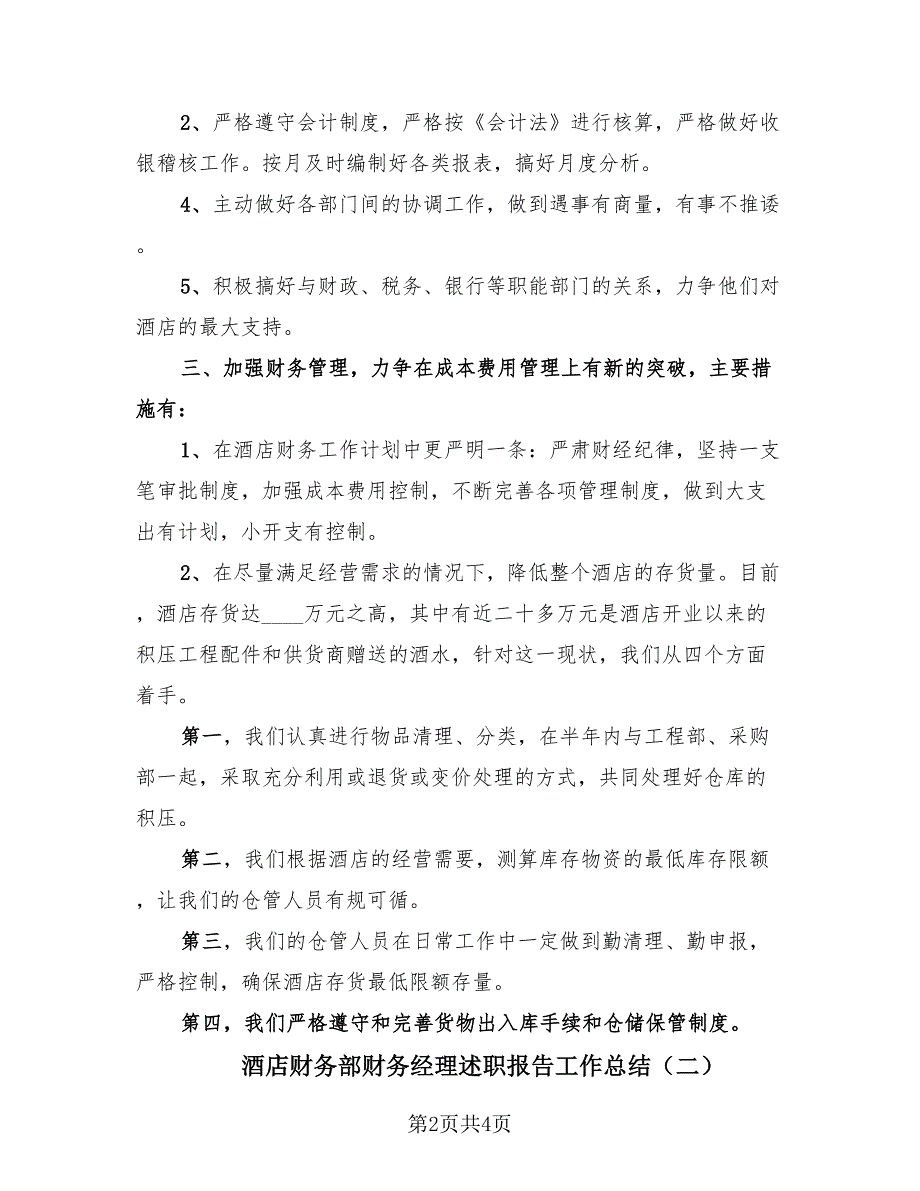 2、严格遵守会计制度，严格按《会计法》进行核算，严格做好收
银稽核工作。按月及时编制好各类报表，搞好月度分析。
4、主动做好各部门间的协调工作，做到遇事有商量，有事不推诿
。
5、积极搞好与财政、税务、银行等职能部门的关系，力争他们对
酒店的最大支持。
三、加强财务管理，力争在成本费用管理上有新的突破，主要措
施有：
1、在酒店财务工作计划中更严明一条：严肃财经纪律，坚持一支
笔审批制度，加强成本费用控制，不断完善各项管理制度，做到大支
出有计划，小开支有控制。
2、在尽量满足经营需求的情况下，降低整个酒店的存货量。目前
，酒店存货达____万元之高，其中有近二十多万元是酒店开业以来的
积压工程配件和供货商赠送的酒水，针对这一现状，我们从四个方面
着手。
第一，我们认真进行物品清理、分类，在半年内与工程部、采购
部一起，采取充分利用或退货或变价处理的方式，共同处理好仓库的
积压。
第二，我们根据酒店的经营需要，测算库存物资的最低库存限额
，让我们的仓管人员有规可循。
第三，我们的仓管人员在日常工作中一定做到勤清理、勤申报，
严格控制，确保酒店存货最低限额存量。
第四，我们严格遵守和完善货物出入库手续和仓储保管制度。
酒店财务部财务经理述职报告工作总结（二）
第2页共4页